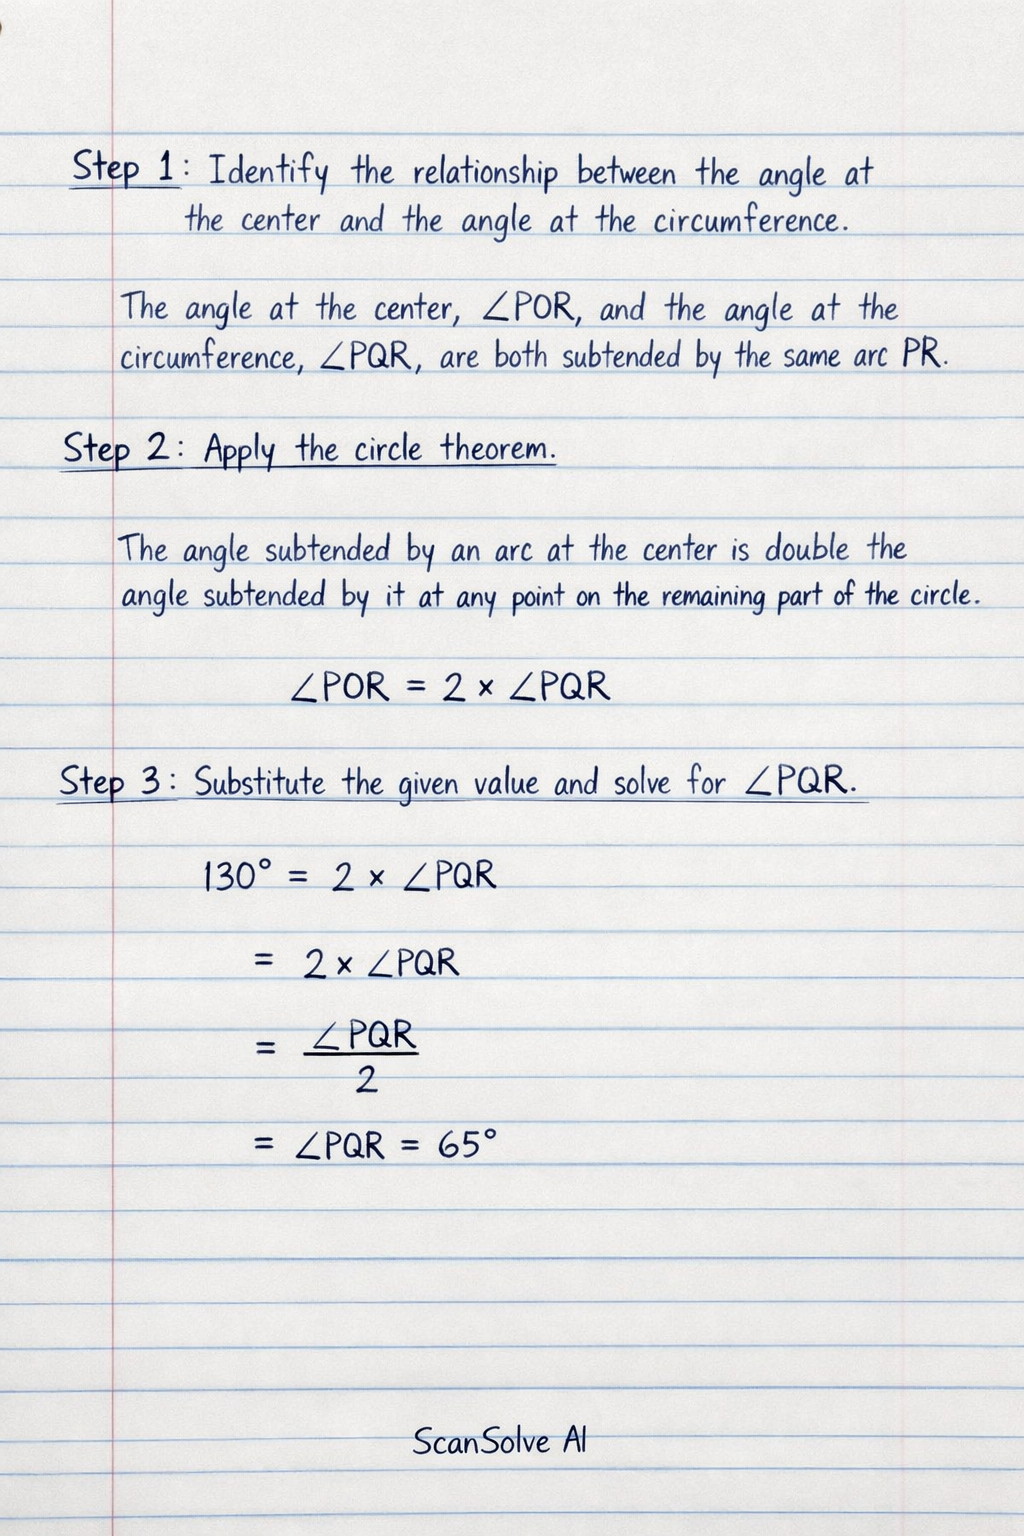 Step 1: Identify the relationship between the angle at
the center and the angle at the circumference.
The angle at the center, ∠POR, and the angle at the
circumference, ∠PQR, are both subtended by the same arc PR.
Step 2: Apply the circle theorem.
The angle subtended by an arc at the center is double the
angle subtended by it at any point on the remaining part of the circle.
∠POR = 2 × ∠PQR
Step 3: Substitute the given value and solve for ∠PQR.
130° = 2 × ∠PQR
= 2 × ∠PQR
= ∠PQR / 2
= ∠PQR = 65°
ScanSolve AI